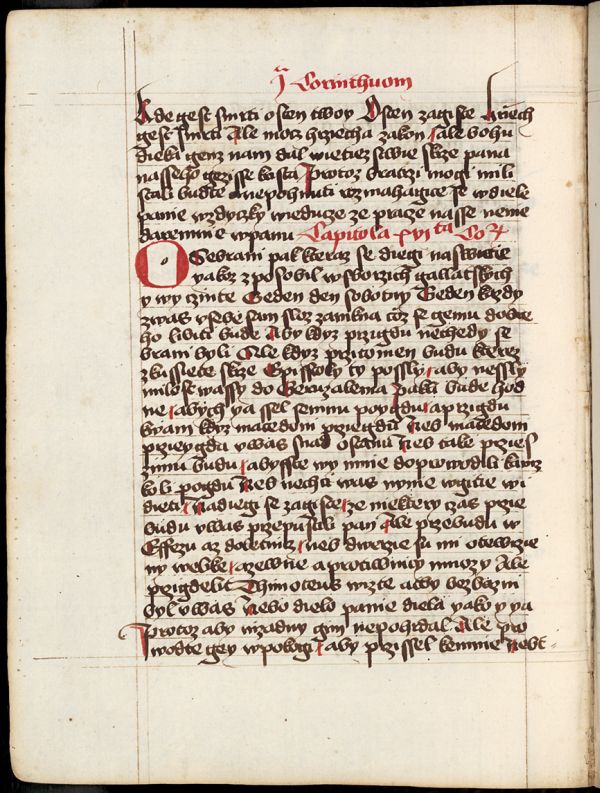 j Corinthuom
kde gest smrti osten twoy Osten zagiste hrziech
gest smrti Ale mocz hrziecha zakon ale bohu
dieki genz nam dal wietiezstwie skrze pana
nasseho gezisse krista Protoz bratrzi mogi mili
stali budte a nepohnuti rozmahagice se w diele
panie wzdyczky wieduze ze praze nasse nenie
daremnie w panu Capitola xvi ta Cor
O Sebrani pak kteraz se diegi na swatie
yakoz zposobil w sborzich gallatskych
y wy czinte Geden den sobotny Geden kazdy
z was v sebe sam sloz zamkna coz se gemu dobre
ho libiti bude Aby kdyz przigdu ne tehedy se
brani byli Ale kdyz przitomen budu kterez
zkussiete skrze Episstoly ty possly aby nessly
milost wassy do Geruzalema Pakli bude hod
ne abych ya ssel semnu poygdu a przigdu
k wam kdyz macedoni przeigdu Neb macedoni
przeygda v was snad ostanu Neb take przes
zimu budu abysste wy mne doprowodili kamz
koli pogdu Neb nechci was nynie w gitie wi
dieti Nadiegi se zagiste ze niektery czas prze
budu v was przepustili pan Ale przebudu w
Effezu az do letnicz neb dwerzie su mi otewrzie
ny welike a zrewne a protiwniczy mnozy Ale
przigdeli Thimoteus wizte aby bez bazni
byl v was Nebo dielo panie diela yako y ya
Protoz aby nizadny gim nepohrdal Ale pro
wodte gey w pokogi aby przissel kemnie Nebt